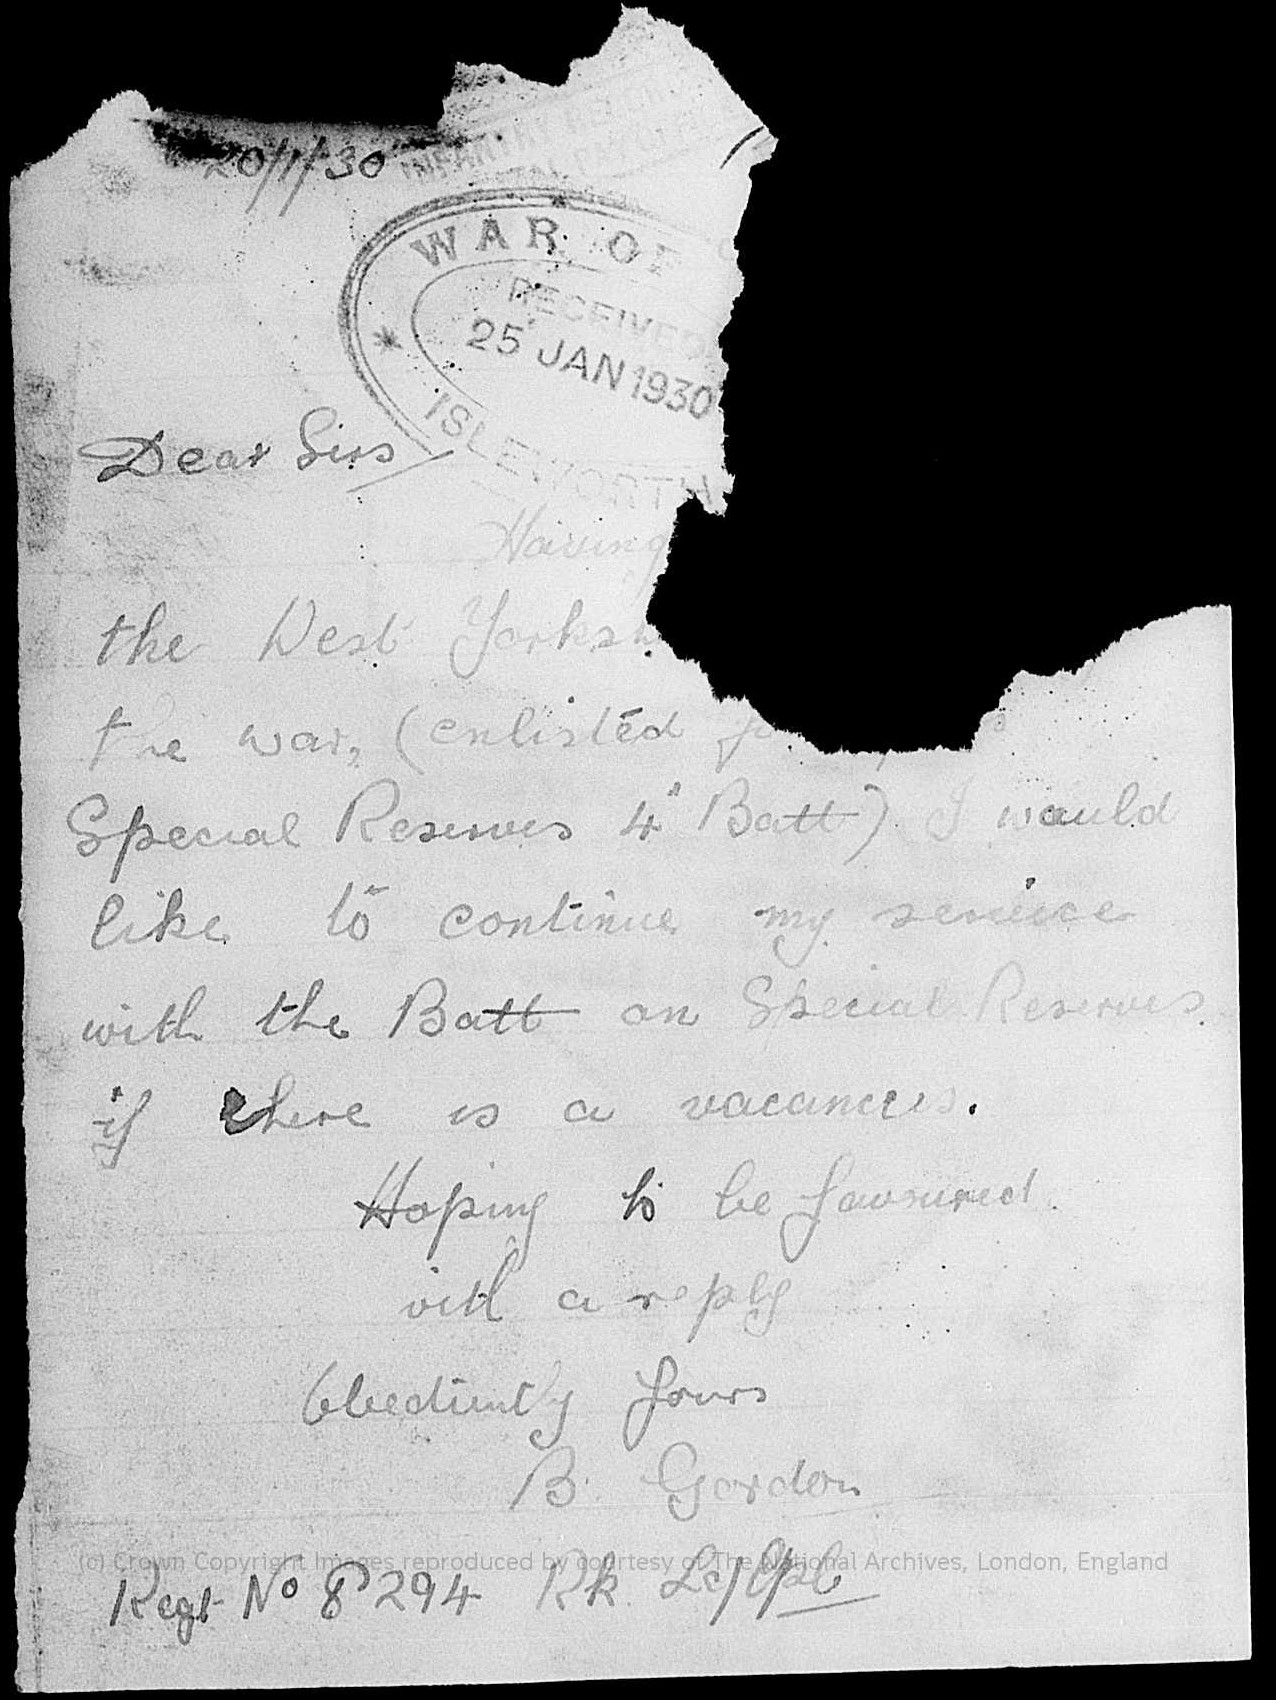 20/1/30
INFANTRY RECORD
PAY OFFICE
WAR OF
RECEIVED
25 JAN 1930
ISLEWORTH
Dear Sirs
Having
the West Yorksh
the war, (enlisted
Special Reserves 4" Batt) I would
like to continue my service
with the Batt on Special Reserves
if there is a vacancies.
Hoping to be favoured
with a reply
Obediently yours
B. Gordon
(c) Crown Copyright Images reproduced by courtesy of The National Archives, London, England
Regt No 8294 Rk. L/Cpl